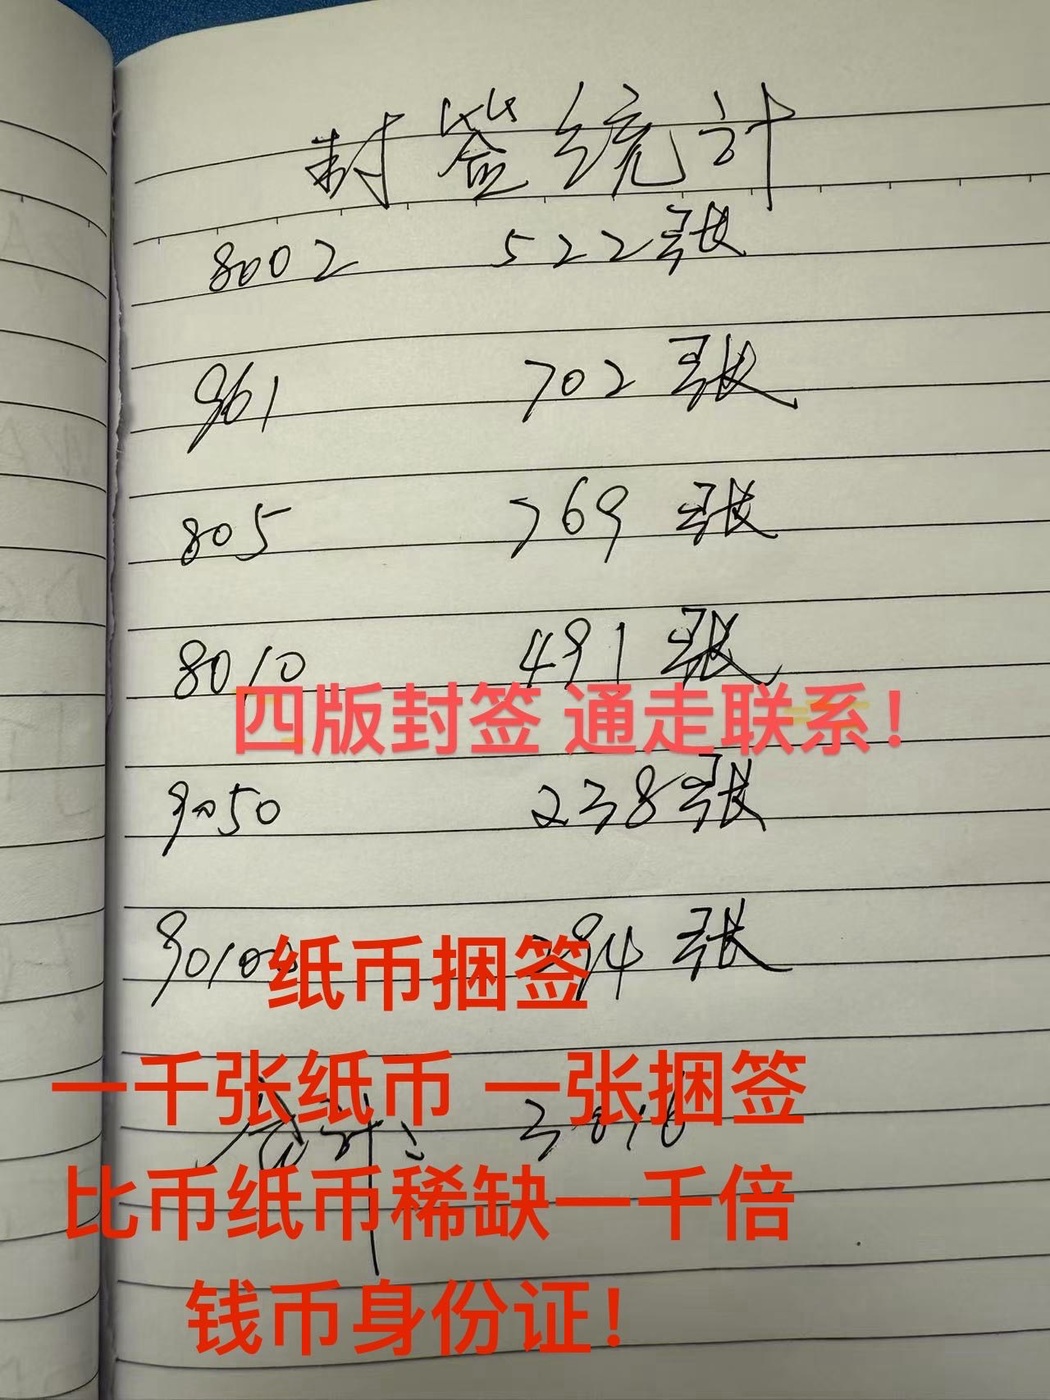 封签统计
8002 522张
961 702张
805 769张
8010 491张
四版封签 通走联系！
9050 238张
90100 294张
纸币捆签
一千张纸币 一张捆签
合计: 3016
比币纸币稀缺一千倍
钱币身份证！